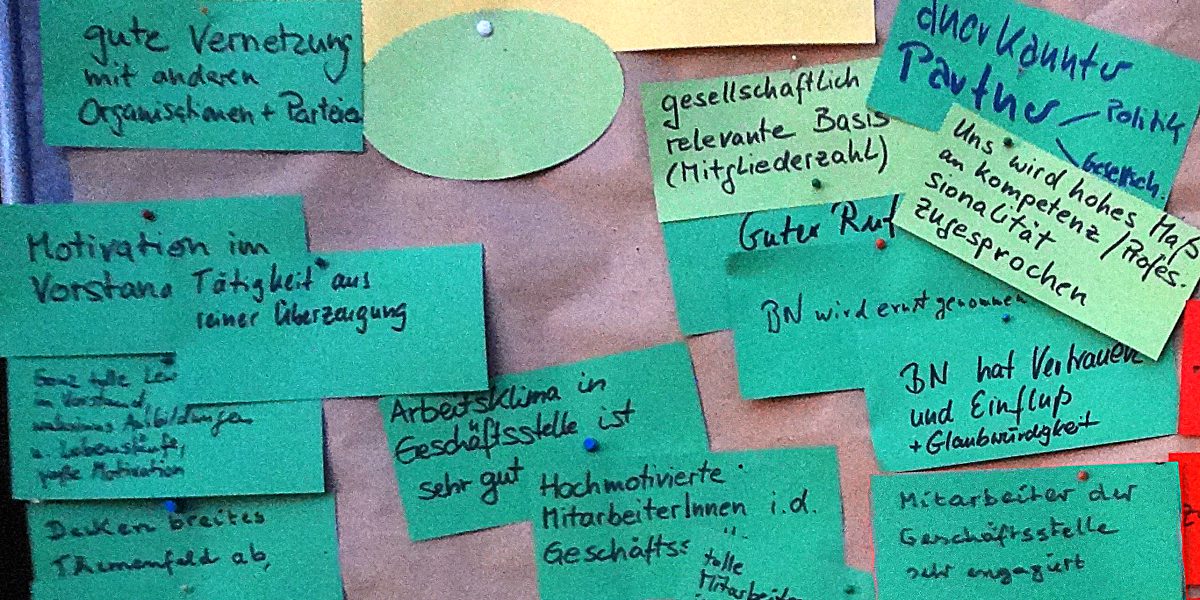 gute Vernetzung
mit anderen
Organisationen + Parteien
gesellschaftlich
relevante Basis
(Mitgliederzahl)
anerkannter
Partner
Politik
Gesellsch.
Uns wird hohes Maß
an kompetenz / Profes.
sionalität
zugesprochen
Guter Ruf
BN wird ernst genommen
BN hat Vertrauen
und Einfluß
+ Glaubwürdigkeit
Motivation im
Vorstand
Tätigkeit aus
reiner Überzeugung
Ganz tolle
im Vorstand,
Ausbildungen
u. Lebensläufe,
große Motivation
Arbeitsklima in
Geschäftsstelle ist
sehr gut
Hochmotivierte
MitarbeiterInnen i.d.
Geschäfts
tolle
Mitarbeiter
Mitarbeiter der
Geschäftsstelle
sehr engagiert
Decken breites
Themenfeld ab,